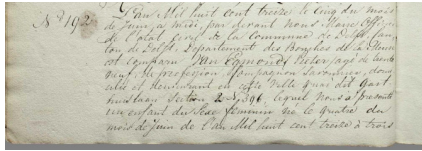 No. 192
L'an Mil huit cent treize le cinq du mois
de Juin à midi, par devant Nous Maire Officier
de l'état civil de la Commune de Delft, Can-
ton de Delft, Département des Bouches de la Meuse
est comparu Jan Egmond agé de
ans, de profession Compagnon Savonnier, domi-
cilié et demeurant en cette Ville quai dit Gast
huislaan Section 2 No. 396, lequel Nous a présenté
un enfant du Sexe féminin né le quatre du
mois de Juin de l'an Mil huit cent treize à trois